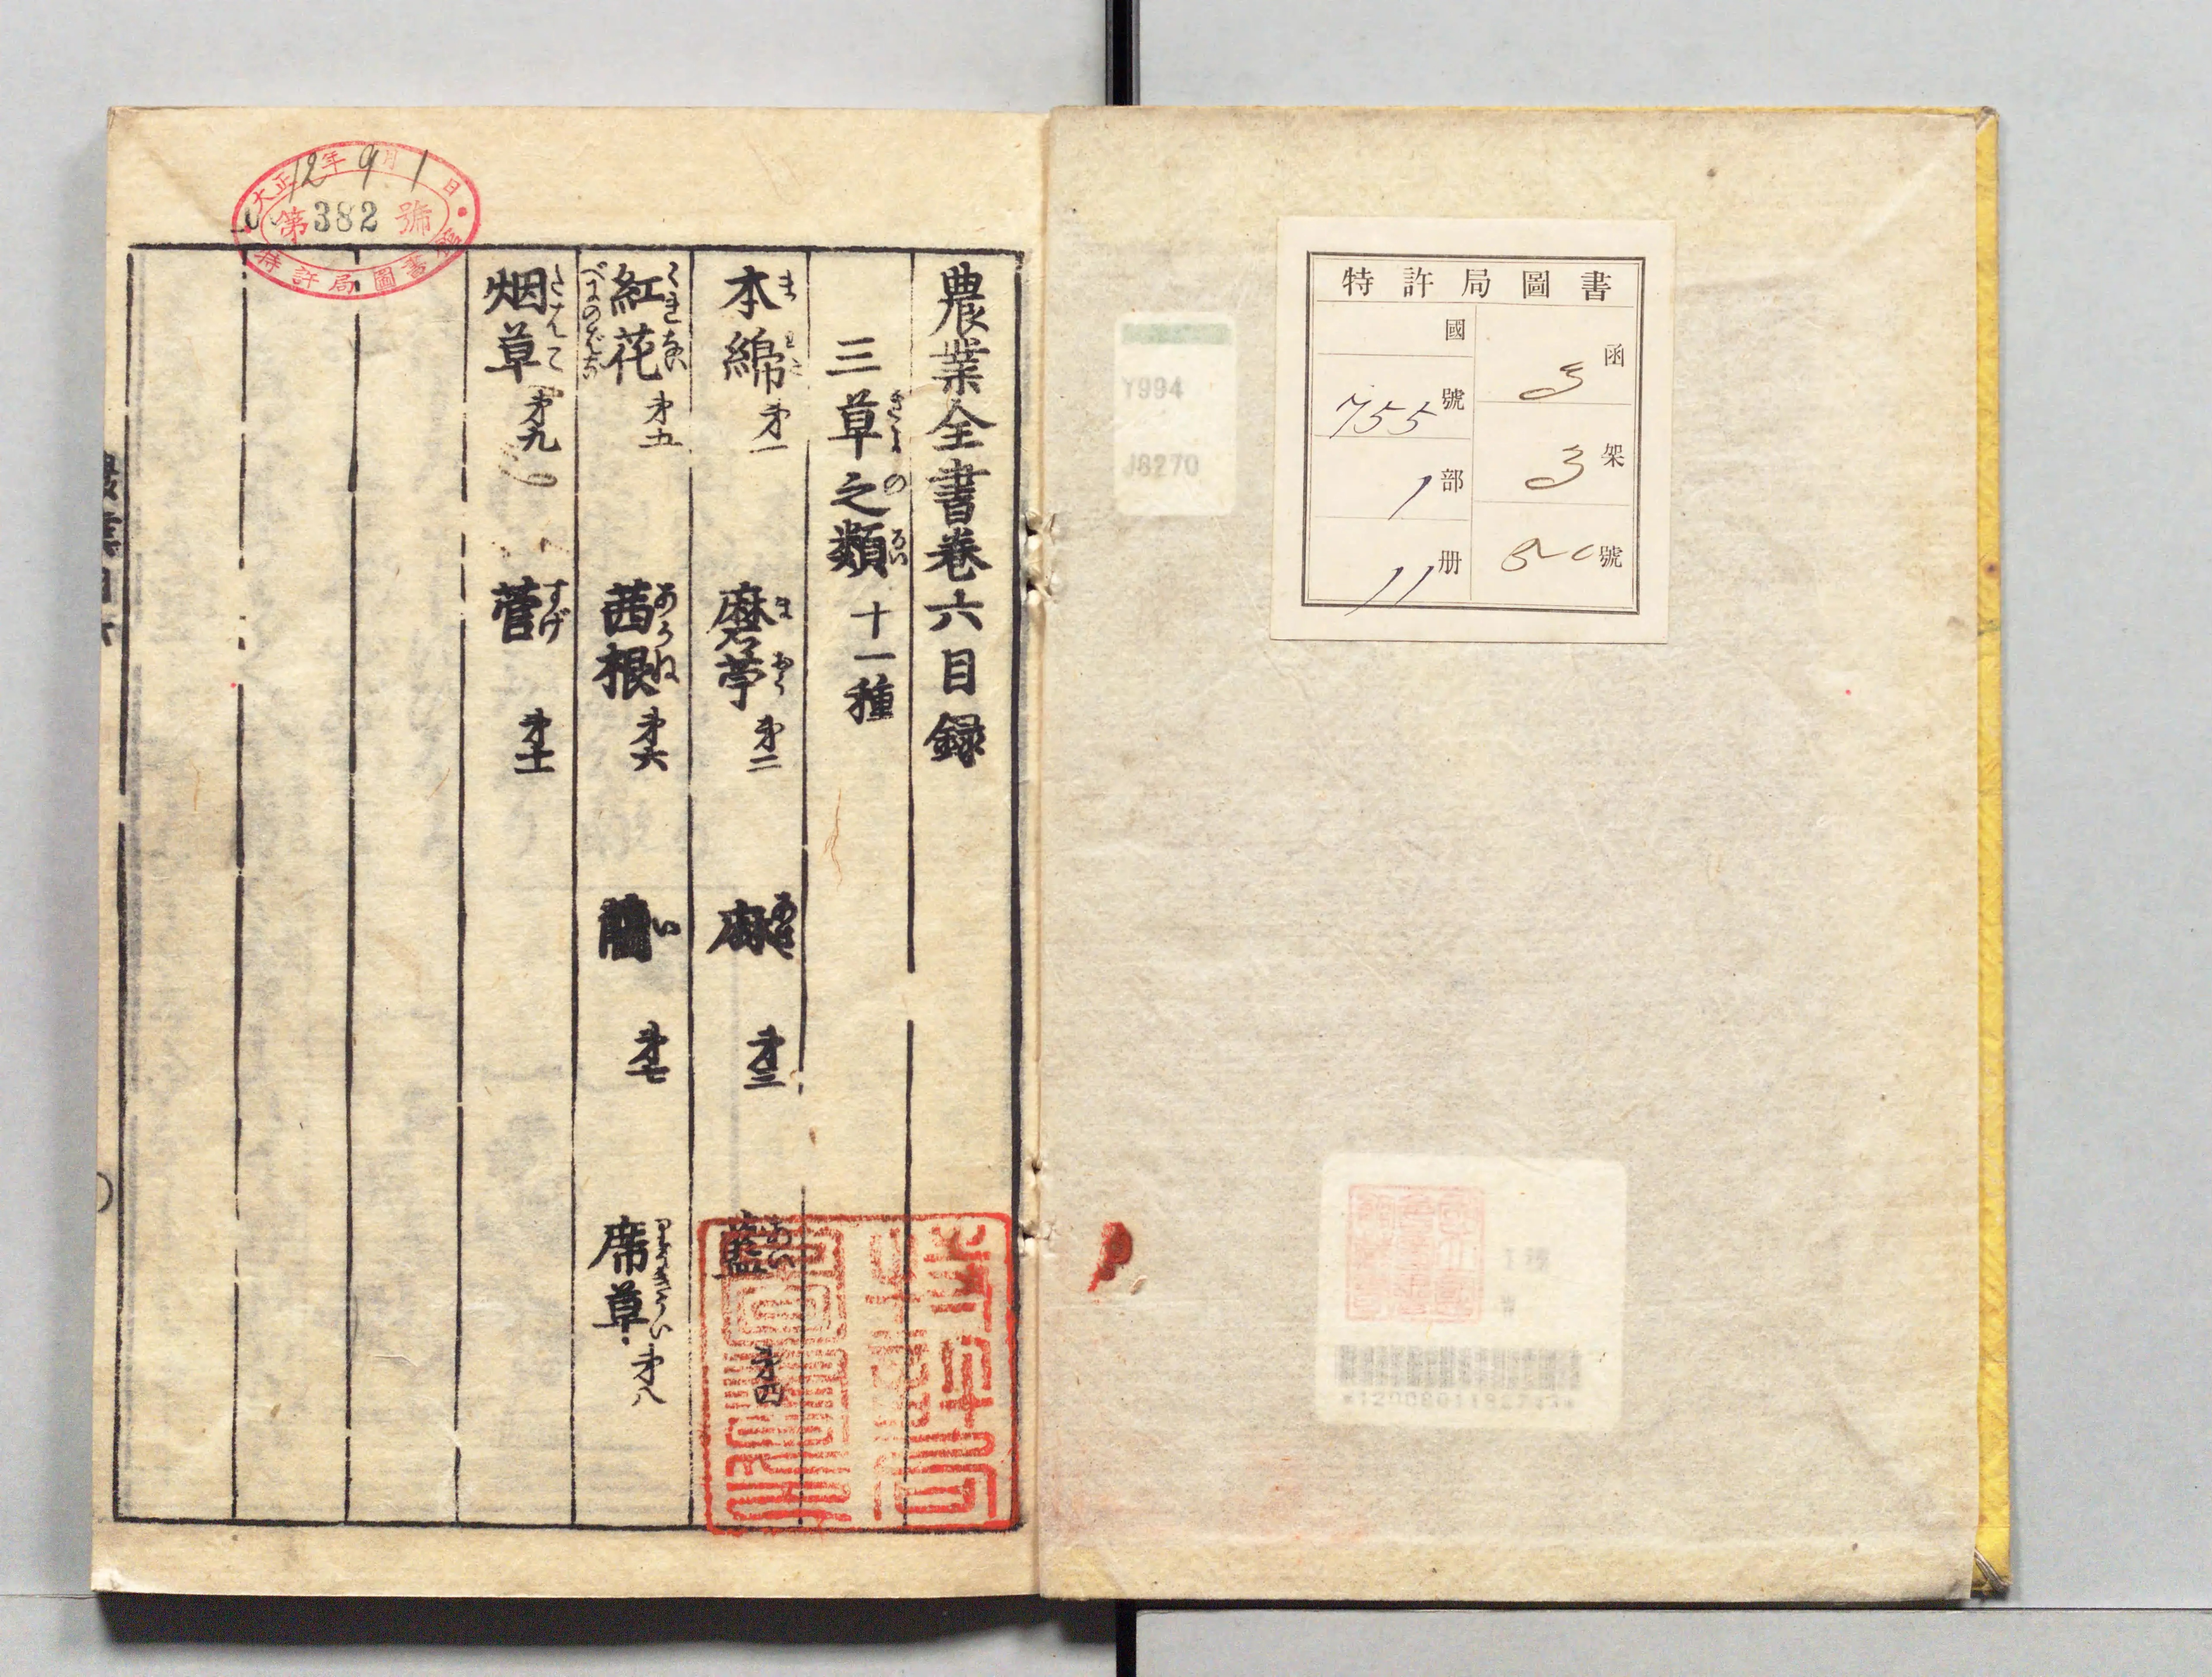 特許局圖書
函 3
架 3
號 520
國
號 755
部 1
册 11
Y994
J8270
農業全書巻六目録
三草之類 十一種
木綿 第一
麻苧 第二
麻 第三
藍 第四
紅花 第五
茜根 第六
藺 第七
席草 第八
烟草 第九
菅 第十一
大正12年9月1日
第382號
特許局圖書館